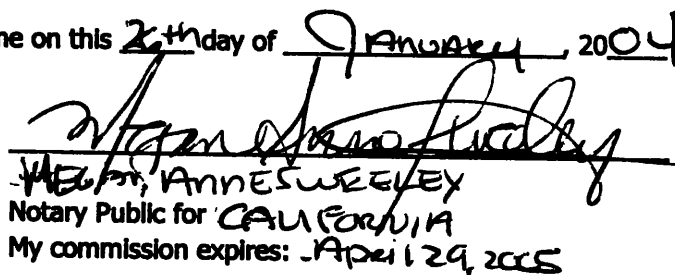 ne on this 26th day of January, 2004
Anne Sweeley
Notary Public for CALIFORNIA
My commission expires: April 29, 2005